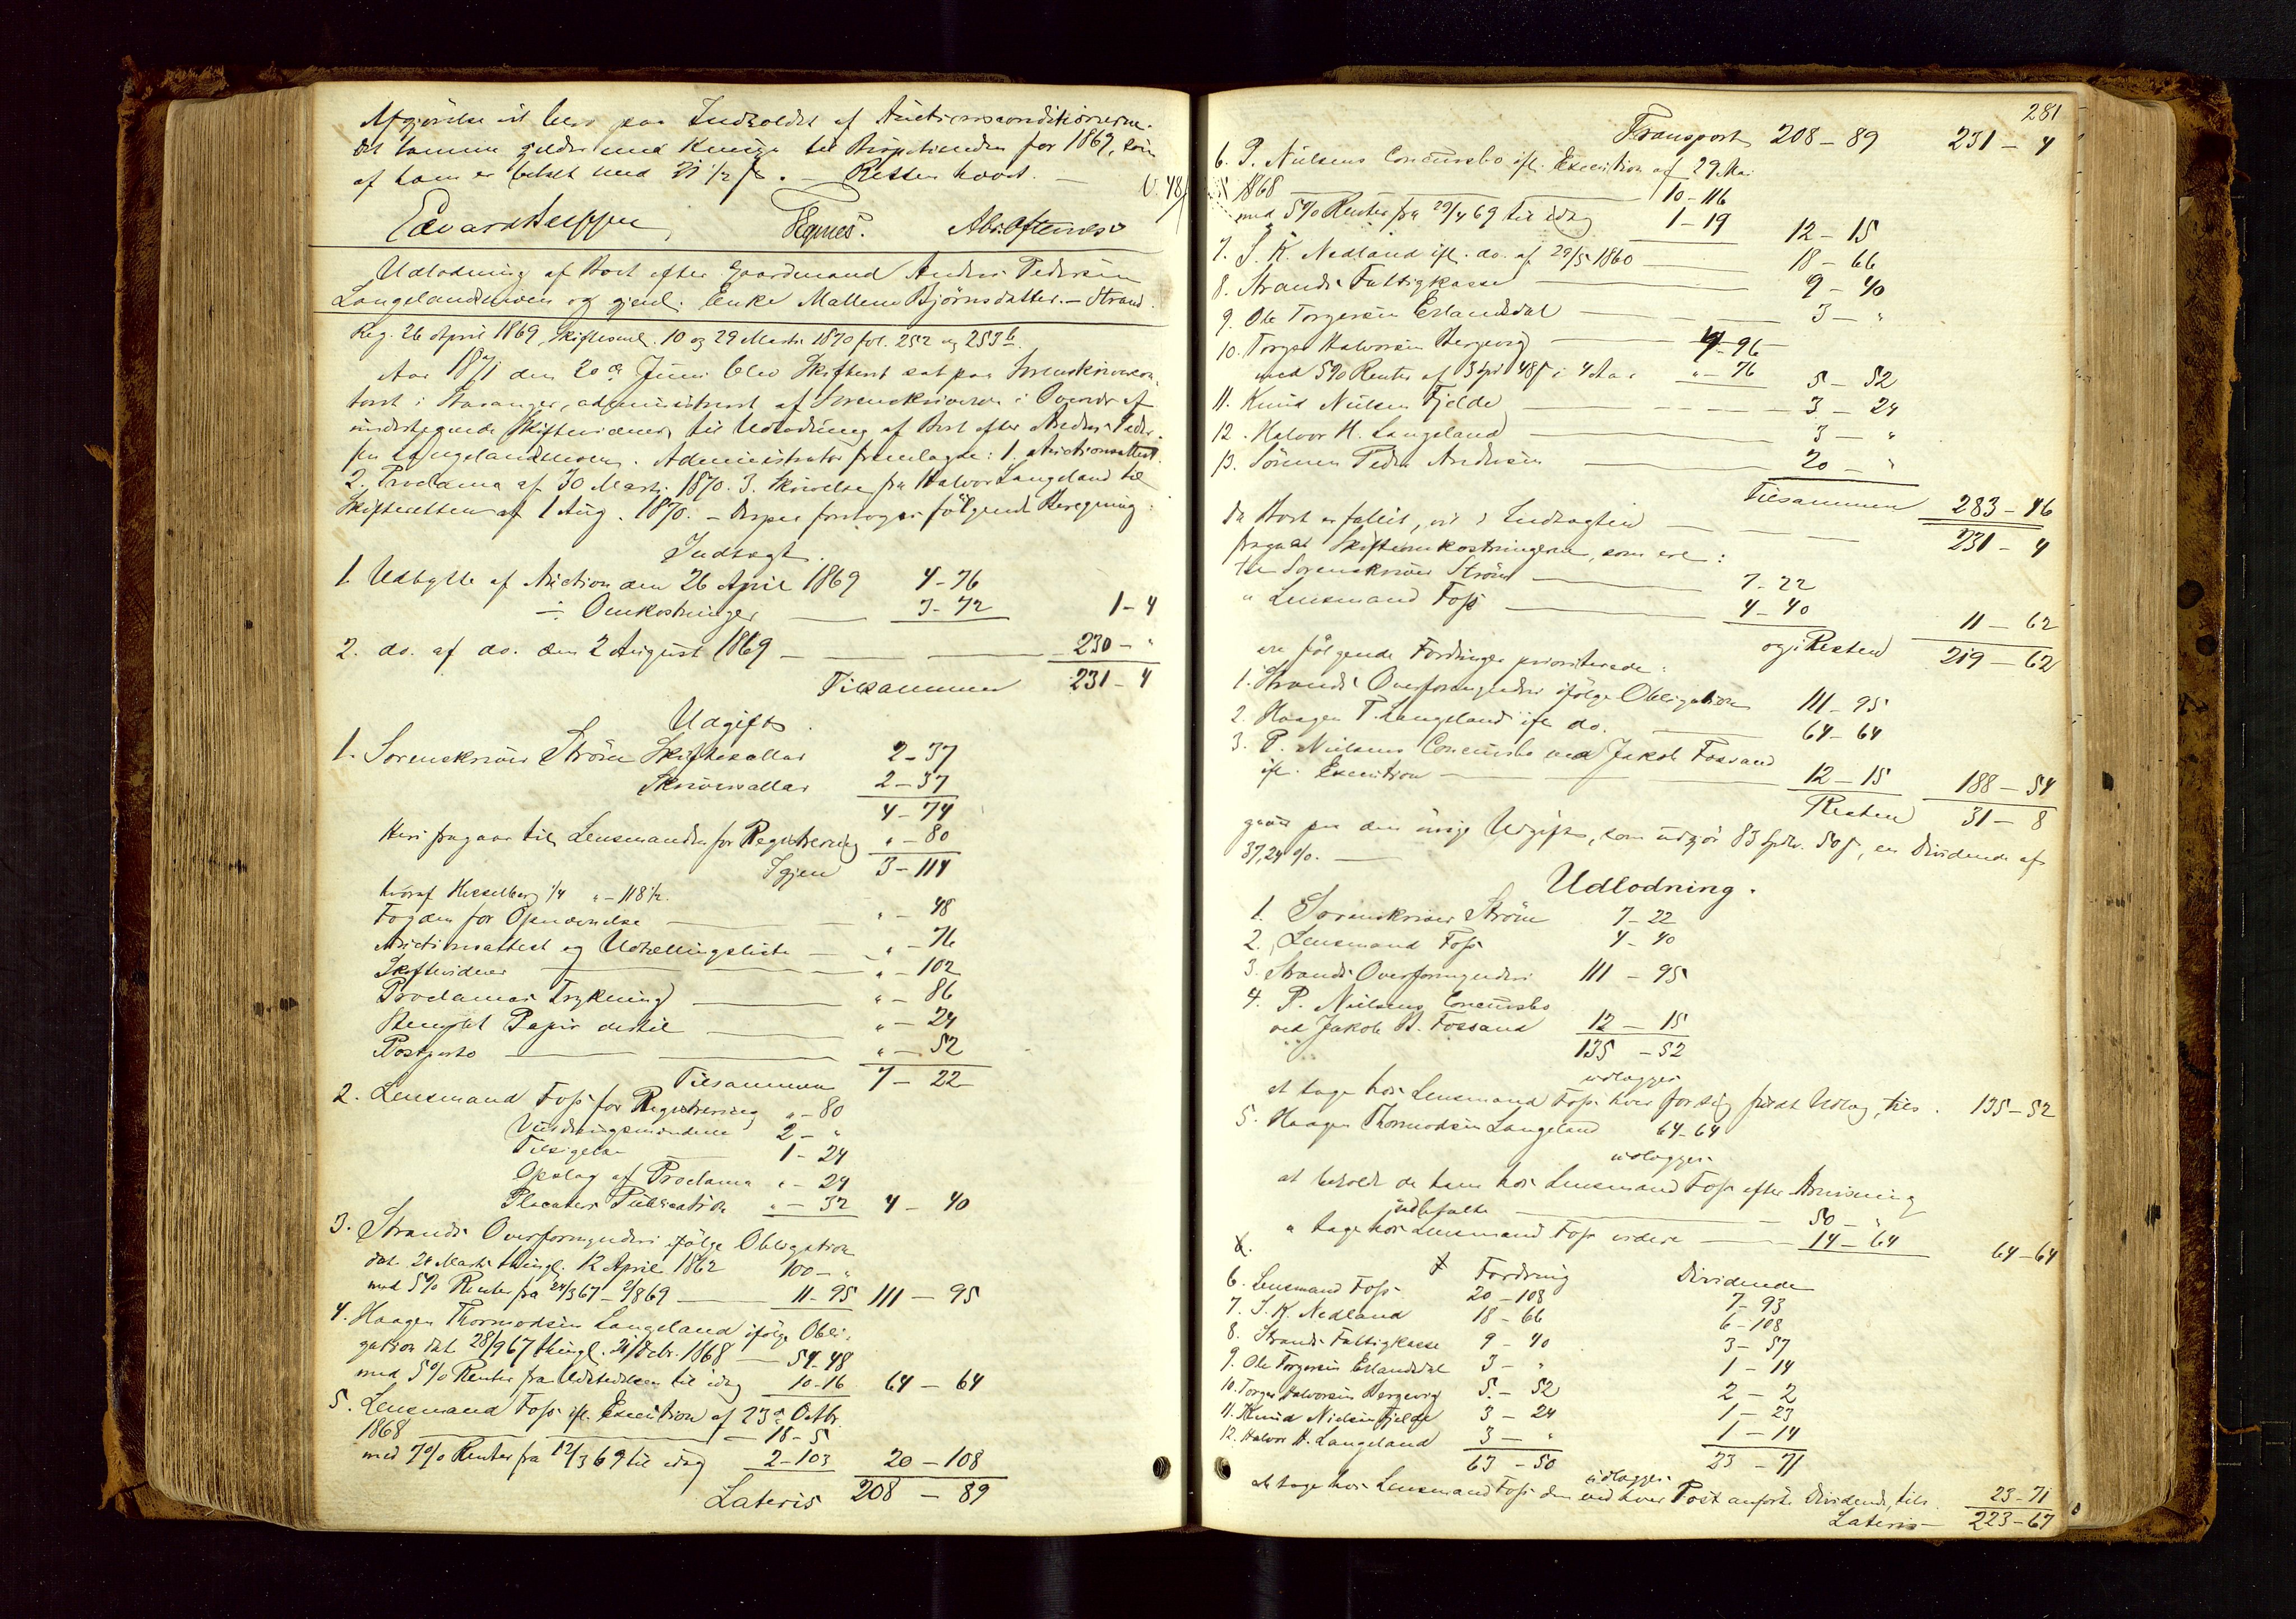 Afgjørelse vil bero paa Indholdet af Auctionsconditionerne.
af ham er betalt med 21 1/2 ß. — Retten hævet. —
Udlodning af Boet efter Gaardmand Anders Pedersen
Langelandsmoen og gjenl. Enke Mallene Bjørnsdatter. — Strand.
Reg. 26 April 1869, Skiftesaml. 10 og 29 Marts 1870 fol. 252 og 253 b.
Aar 1871 den 20de Juni blev Skifteret sat paa Sorenskriverkon-
toret i Stavanger, administreret af Sorenskriveren i Overvær af
undertegnede Skiftevidner, til Udlodning af Boet efter Anders Peder-
sen Langelandsmoen. Administrator fremlagde: 1. Auctionsattest.
2. Proclama af 30 Marts 1870. 3. Skrivelse fra Halvor Langeland til
Skifteretten af 1 Aug. 1870. — Derpaa foretoges følgende Beregning:
Indtægt.
1. Udbytte af Auction den 26 April 1869 4-76
÷ Omkostninger 3-72 1-4
2. do. af do. den 2 August 1869 — 230 - "
Tilsammen 231-4
Udgift.
1. Sorenskriver Strøm Skiftesallar 2-37
Skriversallar 2-37
4-74
Heri fragaar til Lensmanden for Registrering " - 80
Igjen 3-114
hvoraf Hesselberg 1/4 " - 118 1/2.
Fogden for Opnævnelse " - 48
Auctionsattest og Udtællingsliste " - 76
Skiftevidner " - 102
Proclamas Trykning " - 86
Stemplet Papir dertil " - 24
Postporto " - 52
Tilsammen 7-22
2. Lensmand Foss for Registrering " - 80
Vurderingsmændene 2 - "
Tilsigelse 1-24
Opslag af Proclama " - 24
Placaters Publication " - 32 4-40
3. Strands Overformynderi ifølge Obligation
dat. 24 Marts thingl. 12 April 1862 100 - "
med 5% Renter fra 24/3 67 - 2/8 69 — 11-95 111-95
4. Haagen Thormodsen Langeland ifølge Obli-
gation dat. 28/9 67 thingl. 21/Octbr. 1868 — 54-48
med 5% Renter fra Udstedelsen til idag 10-16 64-64
5. Lensmand Foss ifl. Execution af 23de Octbr.
1868 — 18-5
med 7% Renter fra 12/3 69 til idag 2-103 20-108
Lateris 208-89
281
Transport 208-89 231-4
6. P. Nielsens Concursbo ifl. Execution af 29 Mai
1868 — 10-116
med 5% Renter fra 29/4 69 til idag 1-19 12-15
7. S. K. Nedland ifl. do. af 29/5 1860 — 18-66
8. Strands Fattigkasse — 9-40
9. Ole Torgersen Erlandsdal — 3 - "
10. Torger Halvorsen Bergevig — 4-96
med 5% Renter af 3 Spd 48 ß i 4 Aar " - 76 5-52
11. Knud Nielsen Fjelde — 3-24
12. Halvor H. Langeland — 3 - "
13. Sønnen Peder Andersen — 20 - "
Tilsammen 283-46
Da Boet er fallit, vil i Indtægten — 231-4
fragaa Skifteomkostningerne, som ere:
til Sorenskriver Strøm — 7-22
" Lensmand Foss — 4-40 11-62
og i Resten 219-62
ere følgende Fordringer prioriterede:
1. Strands Overformynderi ifølge Obligation 111-95
2. Haagen T. Langeland ifl. do. 64-64
3. P. Nielsens Concursbo ved Jakob Fossand
ifl. Execution — 12-15 188-54
Resten 31-8
giver paa den øvrige Udgift, som udgjør 83 Spdlr. 50 ß, en Dividende af
37,24 %. —
Udlodning.
1. Sorenskriver Strøm 7-22
2. Lensmand Foss 4-40
3. Strands Overformynderi 111-95
4. P. Nielsens Concursbo
ved Jakob B. Fossand 12-15
135-52
udlægges
at tage hos Lensmand Foss hver for sig fuldt Udlæg, tils. 135-52
5. Haagen Thormodsen Langeland 64-64
udlægges
at beholde de ham hos Lensmand Foss efter Anvisning
udbetalte — 50 - "
" tage hos Lensmand Foss videre — 14-64 64-64
Fordring Dividende
6. Lensmand Foss 20-108 7-93
7. S. K. Nedland 18-66 6-108
8. Strands Fattigkasse 9-40 3-57
9. Ole Torgersen Erlandsdal 3 - " 1-14
10. Torger Halvorsen Bergevig 5-52 2-2
11. Knud Nielsen Fjelde 3-24 1-23
12. Halvor H. Langeland 3 - " 1-14
63-50 23-71
udlægges
at tage hos Lensmand Foss den ved hver Post anførte Dividende, tils. 23-71
Lateris 223-67